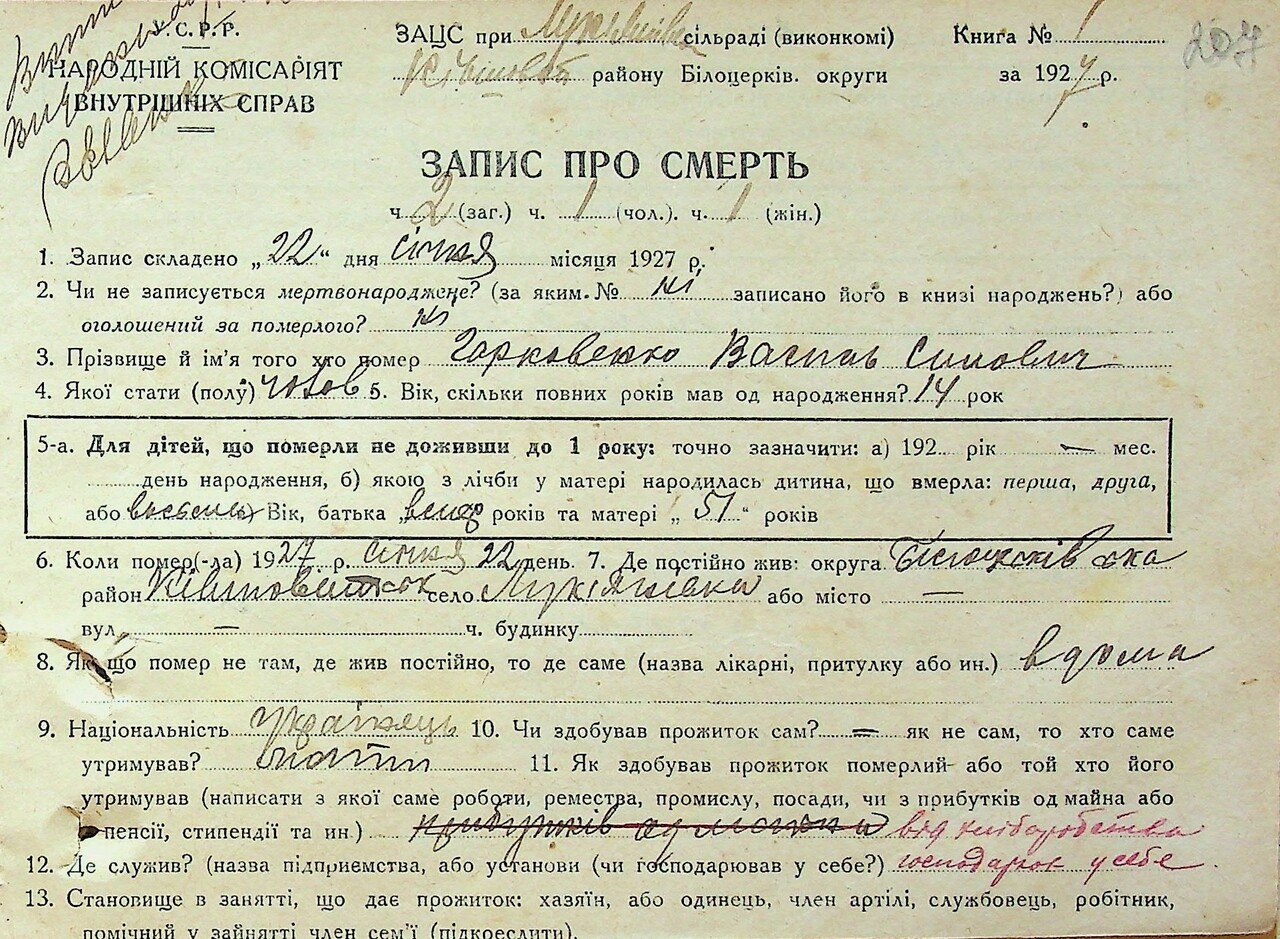 У.С.Р.Р.
НАРОДНІЙ КОМІСАРІЯТ
ВНУТРІШНІХ СПРАВ
ЗАЦС при сільраді (виконкомі)
району Білоцерків. округи
Книга № 1
за 1927 р.
207
ЗАПИС ПРО СМЕРТЬ
ч. 2 (заг.) ч. 1 (чол.). ч. 1 (жін.)
1. Запис складено „22“ дня січня місяця 1927 р.
2. Чи не записується мертвонароджене? (за яким № ні записано його в книзі народжень?) або
оголошений за померлого? ні
3. Прізвище й ім'я того хто помер Горковенко Василь Силович
4. Якої стати (полу) чолов 5. Вік, скільки повних років мав од народження? 14 рок
5-а. Для дітей, що померли не доживши до 1 року: точно зазначити: а) 192 рік — мес.
день народження, б) якою з лічби у матері народилась дитина, що вмерла: перша, друга,
або Вік, батька „ років та матері „51“ років
6. Коли помер(-ла) 1927 р. січня 22 день. 7. Де постійно жив: округа Білоцерківська
район село Лукіянівка або місто —
вул. — ч. будинку
8. Якщо помер не там, де жив постійно, то де саме (назва лікарні, притулку або ин.) вдома
9. Національність Українець 10. Чи здобував прожиток сам? — як не сам, то хто саме
утримував? 11. Як здобував прожиток померлий або той хто його
утримував (написати з якої саме роботи, ремества, промислу, посади, чи з прибутків од майна або
пенсії, стипендії та ин.) від хліборобства
12. Де служив? (назва підприємства, або установи (чи господарював у себе?) господарює у себе
13. Становище в занятті, що дає прожиток: хазяїн, або одинець, член артілі, службовець, робітник,
помічний у зайнятті член сем'ї (підкреслити).